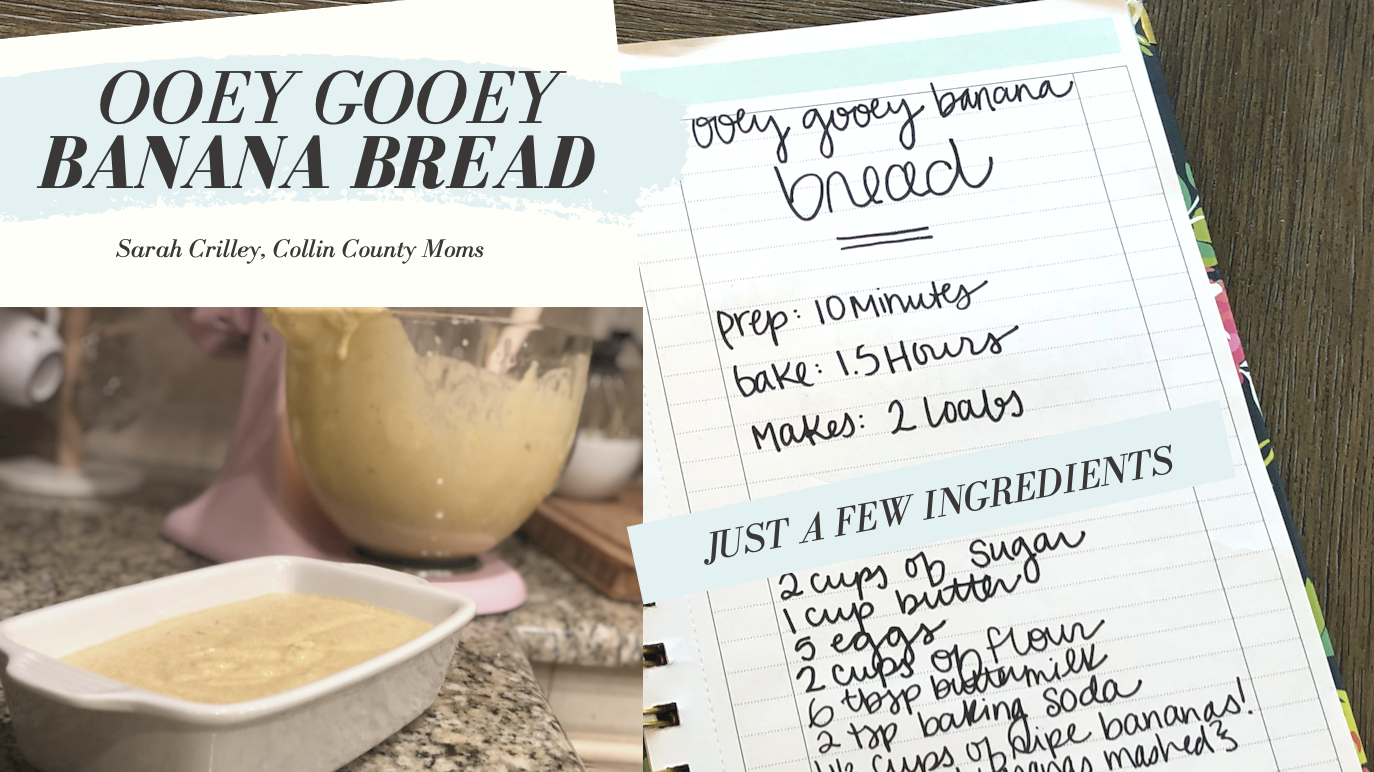 OOEY GOOEY
BANANA BREAD
Sarah Crilley, Collin County Moms
ooey gooey banana
bread
prep: 10 Minutes
bake: 1.5 Hours
Makes: 2 loabs
JUST A FEW INGREDIENTS
2 cups of sugar
1 cup butter
5 eggs
2 cups of flour
6 tbsp buttermilk
2 tsp baking soda
cups of ripe bananas!
bananas mashed